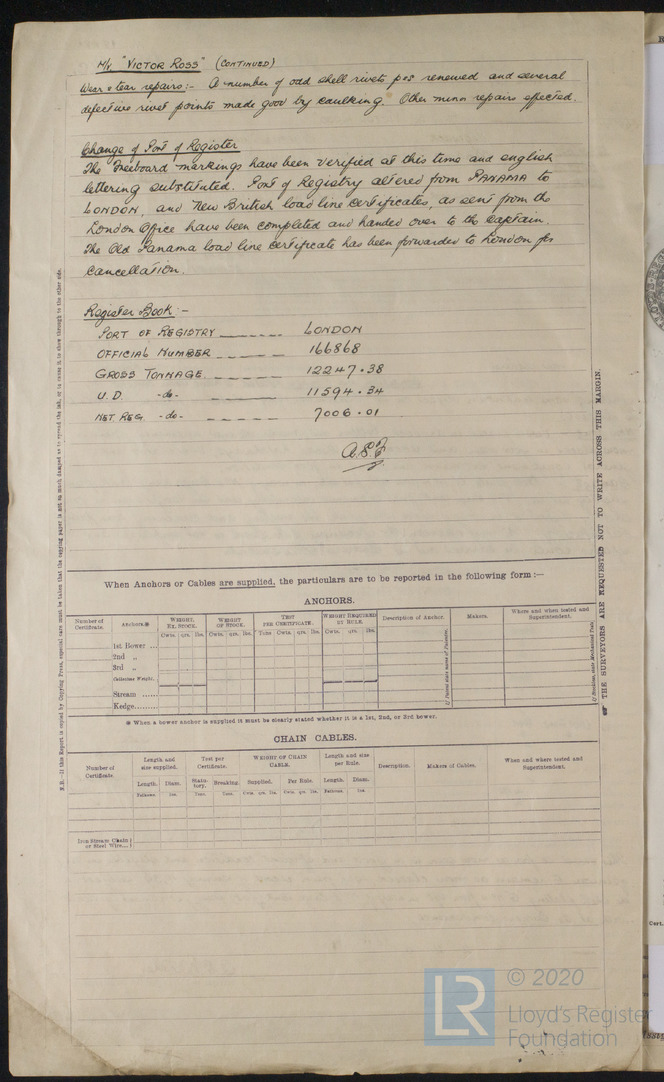 M/V "VICTOR ROSS" (CONTINUED)
Wear & tear repairs:- A number of odd shell rivets p&s renewed and several
defective rivet points made good by caulking. Other minn repairs effected.
Change of Port of Register
The Freeboard markings have been verified at this time and english
lettering substituted. Port of Registry altered from PANAMA to
LONDON, and New British load line certificates, as sent from the
London Office have been completed and handed over to the Captain.
The Old Panama load line certificate has been forwarded to London for
cancellation.
Register Book:-
PORT OF REGISTRY ------ LONDON
OFFICIAL NUMBER ----- 166868
GROSS TONNAGE ------ 12247.38
U.D. -do- ----- 11594.34
NET REG. -do- ----- 7006.01
When Anchors or Cables are supplied, the particulars are to be reported in the following form :—
ANCHORS.
Number of Certificate. Anchors.* WEIGHT, EX. STOCK. WEIGHT OF STOCK. TEST PER CERTIFICATE. WEIGHT REQUIRED BY RULE. Description of Anchor. Makers. Where and when tested and Superintendent.
Cwts. qrs. lbs. Cwts. qrs. lbs. Tons Cwts. qrs. lbs. Cwts. qrs. lbs.
1st Bower ...
2nd „
3rd „
Collective Weight.
Stream ......
Kedge.........
* When a bower anchor is supplied it must be clearly stated whether it is a 1st, 2nd, or 3rd bower.
CHAIN CABLES.
Number of Certificate. Length and size supplied. Test per Certificate. WEIGHT OF CHAIN CABLE. Length and size per Rule. Description. Makers of Cables. When and where tested and Superintendent.
Length. Diam. Statutory. Breaking. Supplied. Per Rule. Length. Diam.
Fathoms. Ins. Tons. Tons. Cwts. qrs. lbs. Cwts. qrs. lbs. Fathoms. Ins.
Iron Stream Chain
or Steel Wire...
N.B.—If this Report is copied by Copying Press, especial care must be taken that the copying paper is not so much damped as to spread the ink, or to cause it to show through to the other side.
THE SURVEYORS ARE REQUESTED NOT TO WRITE ACROSS THIS MARGIN.
Cert.
LR
© 2020
Lloyd's Register
Foundation